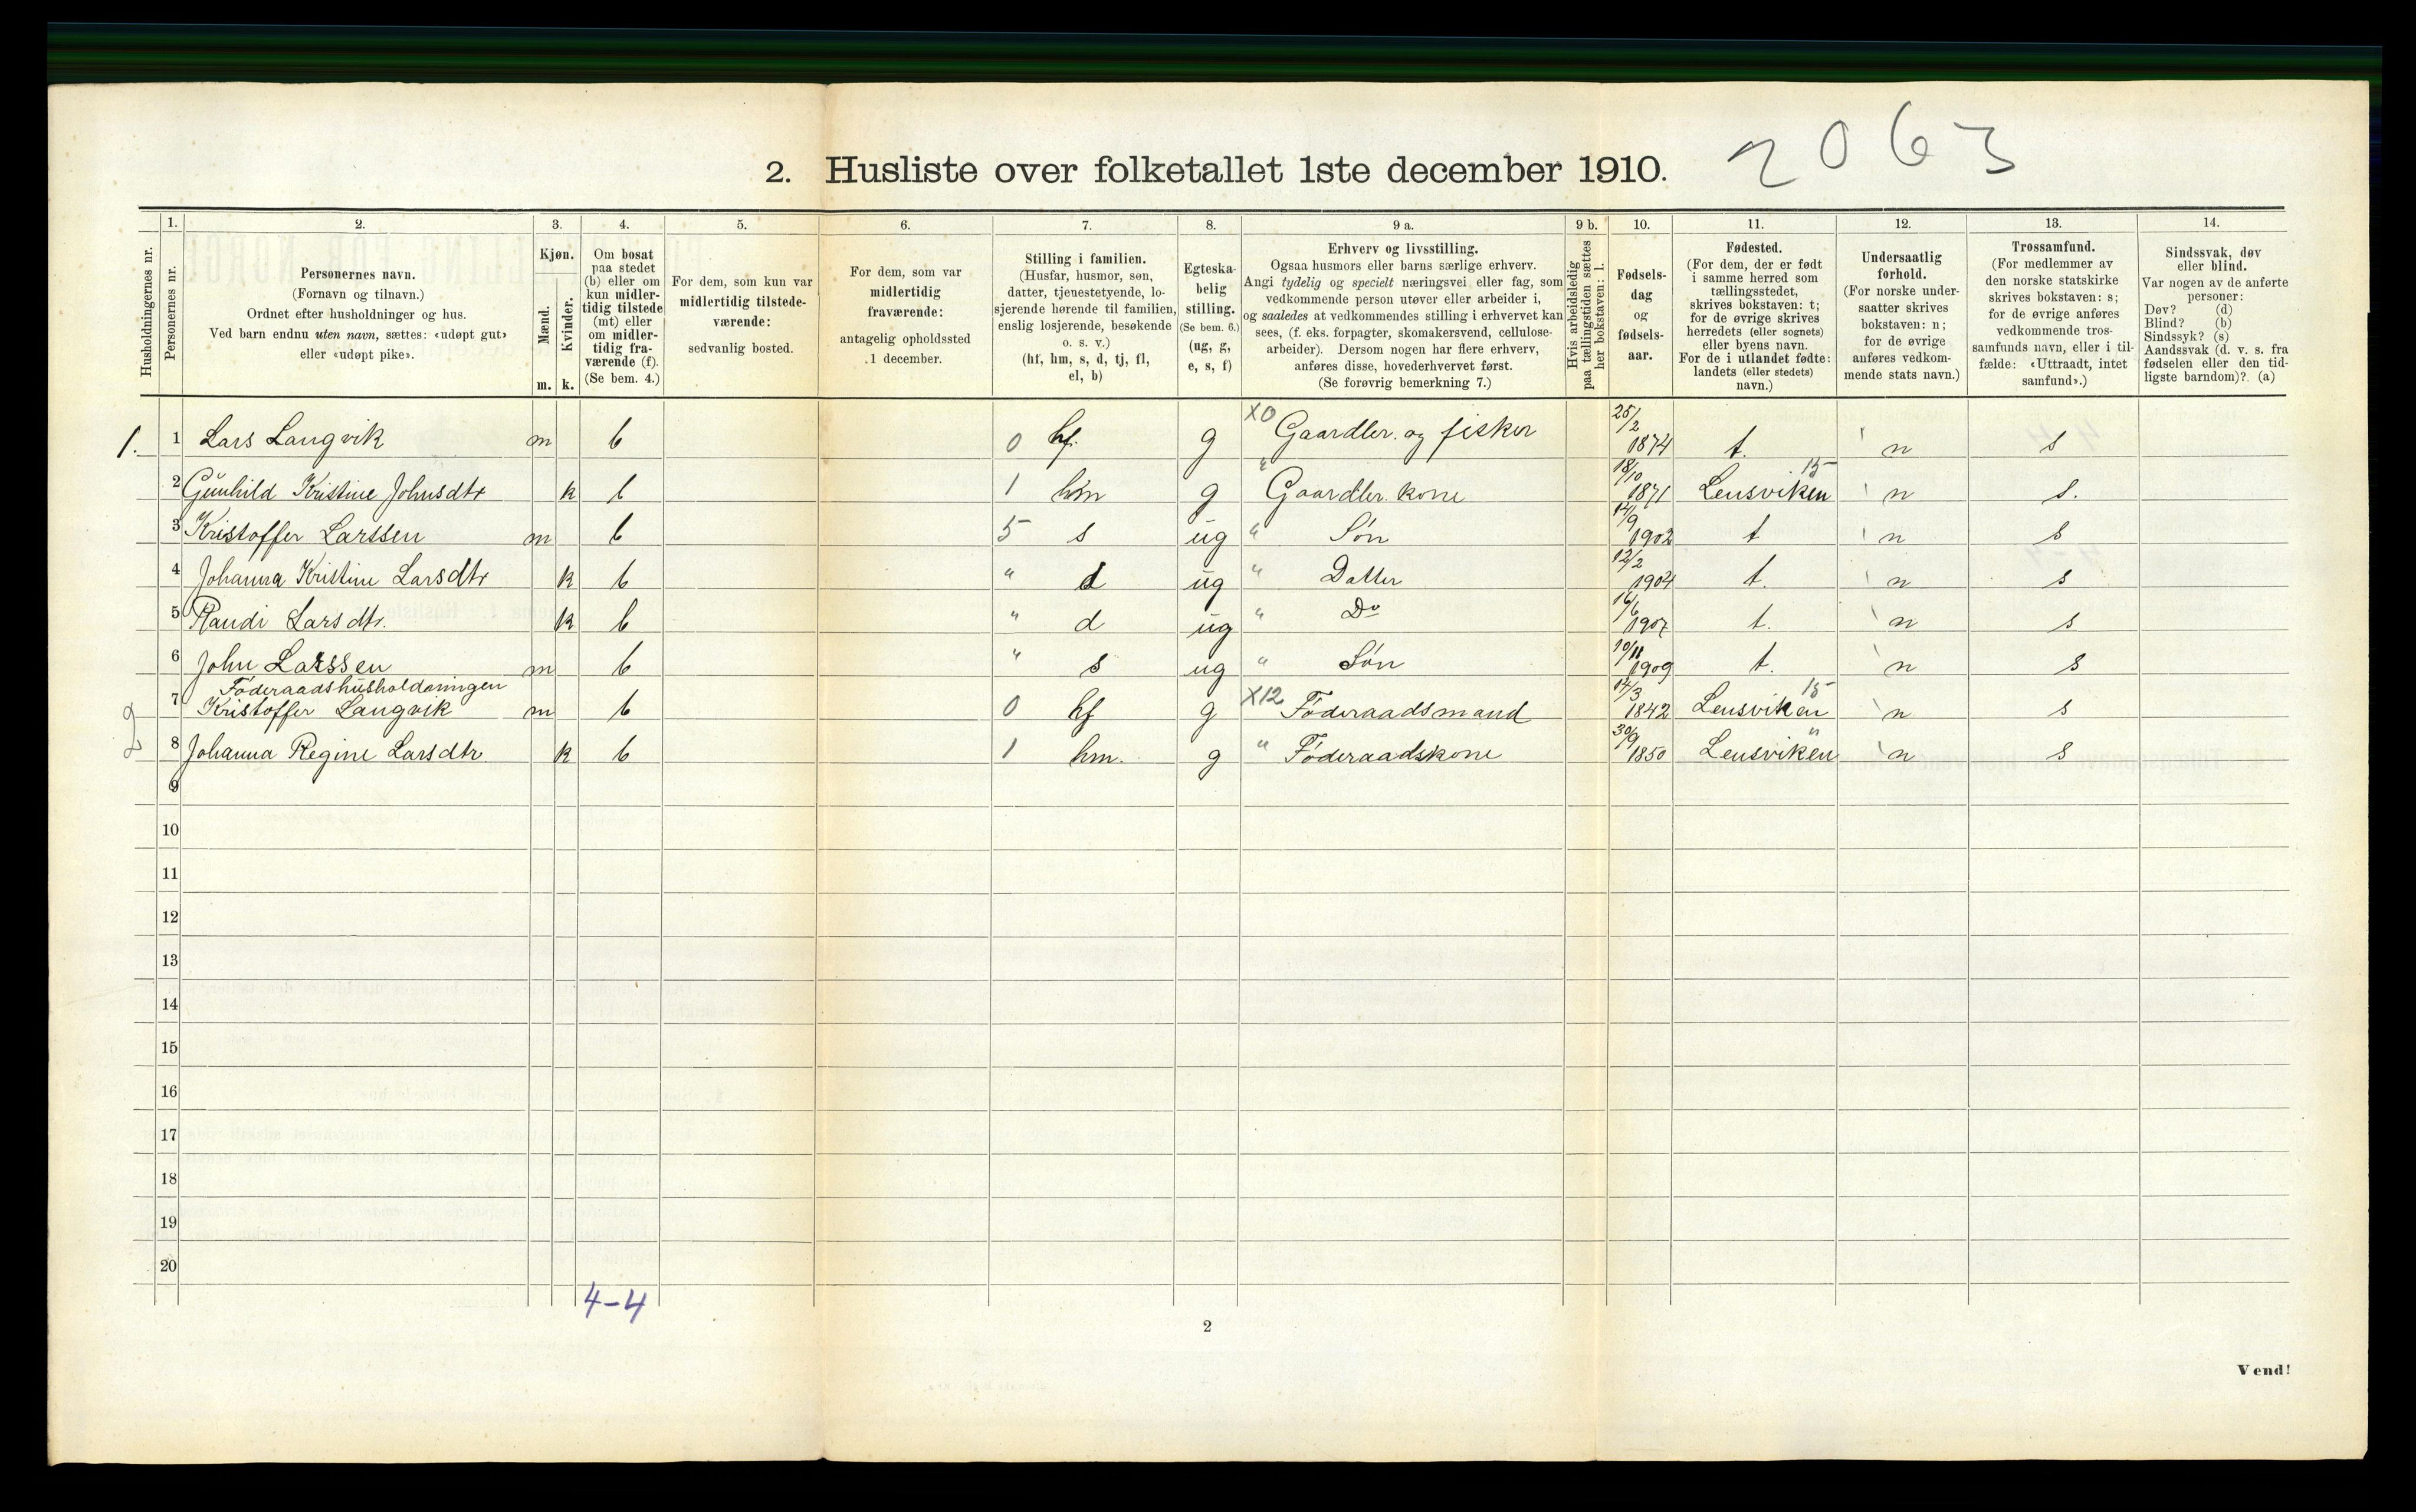 2063
2. Husliste over folketallet 1ste december 1910.
Husholdningernes nr.
1. Personernes nr.
2. Personernes navn.
(Fornavn og tilnavn.)
Ordnet efter husholdninger og hus.
Ved barn endnu uten navn, sættes: «udøpt gut»
eller «udøpt pike».
3. Kjøn.
Mænd. m.
Kvinder. k.
4. Om bosat
paa stedet
(b) eller om
kun midler-
tidig tilstede
(mt) eller
om midler-
tidig fra-
værende (f).
(Se bem. 4.)
5. For dem, som kun var
midlertidig tilstede-
værende:
sedvanlig bosted.
6. For dem, som var
midlertidig
fraværende:
antagelig opholdssted
1 december.
7. Stilling i familien.
(Husfar, husmor, søn,
datter, tjenestetyende, lo-
sjerende hørende til familien,
enslig losjerende, besøkende
o. s. v.)
(hf, hm, s, d, tj, fl,
el, b)
8. Egteska-
belig
stilling.
(Se bem. 6.)
(ug, g,
e, s, f)
9 a. Erhverv og livsstilling.
Ogsaa husmors eller barns særlige erhverv.
Angi tydelig og specielt næringsvei eller fag, som
vedkommende person utøver eller arbeider i,
og saaledes at vedkommendes stilling i erhvervet kan
sees, (f. eks. forpagter, skomakersvend, cellulose-
arbeider). Dersom nogen har flere erhverv,
anføres disse, hovederhvervet først.
(Se forøvrig bemerkning 7.)
9 b. Hvis arbeidsledig
paa tællingstiden sættes
her bokstaven: l.
10. Fødsels-
dag
og
fødsels-
aar.
11. Fødested.
(For dem, der er født
i samme herred som
tællingsstedet,
skrives bokstaven: t;
for de øvrige skrives
herredets (eller sognets)
eller byens navn.
For de i utlandet fødte:
landets (eller stedets)
navn.)
12. Undersaatlig
forhold.
(For norske under-
saatter skrives
bokstaven: n;
for de øvrige
anføres vedkom-
mende stats navn.)
13. Trossamfund.
(For medlemmer av
den norske statskirke
skrives bokstaven: s;
for de øvrige anføres
vedkommende tros-
samfunds navn, eller i til-
fælde: «Uttraadt, intet
samfund».)
14. Sindssvak, døv
eller blind.
Var nogen av de anførte
personer:
Døv? (d)
Blind? (b)
Sindssyk? (s)
Aandssvak (d. v. s. fra
fødselen eller den tid-
ligste barndom)? (a)
1. 1 Lars Langvik m b 0 hf. g X0 Gaardbr. og fisker 25/2 1874 t. n s
2 Gunhild Kristine Johnsdtr k b 1 hm g " Gaardbr. kone 18/10 1871 Lensviken 15 n s.
3 Kristoffer Larssen m b 5 s ug " Søn 14/9 1902 t n s
4 Johanna Kristine Larsdtr k b " d ug " Datter 12/2 1904 t. n s
5 Randi Larsdtr. k b " d ug " Do 16/6 1907 t. n s
6 John Larssen m b " s ug " Søn 10/11 1909 t. n s
Føderaadshusholdningen
2 7 Kristoffer Langvik m b 0 hf g X12 Føderaadsmand 14/3 1842 Lensviken 15 n s
8 Johanna Regine Larsdtr k b 1 hm. g " Føderaadskone 30/9 1850 Lensviken " n s
9
10
11
12
13
14
15
16
17
18
19
20
4-4
2
Vend!